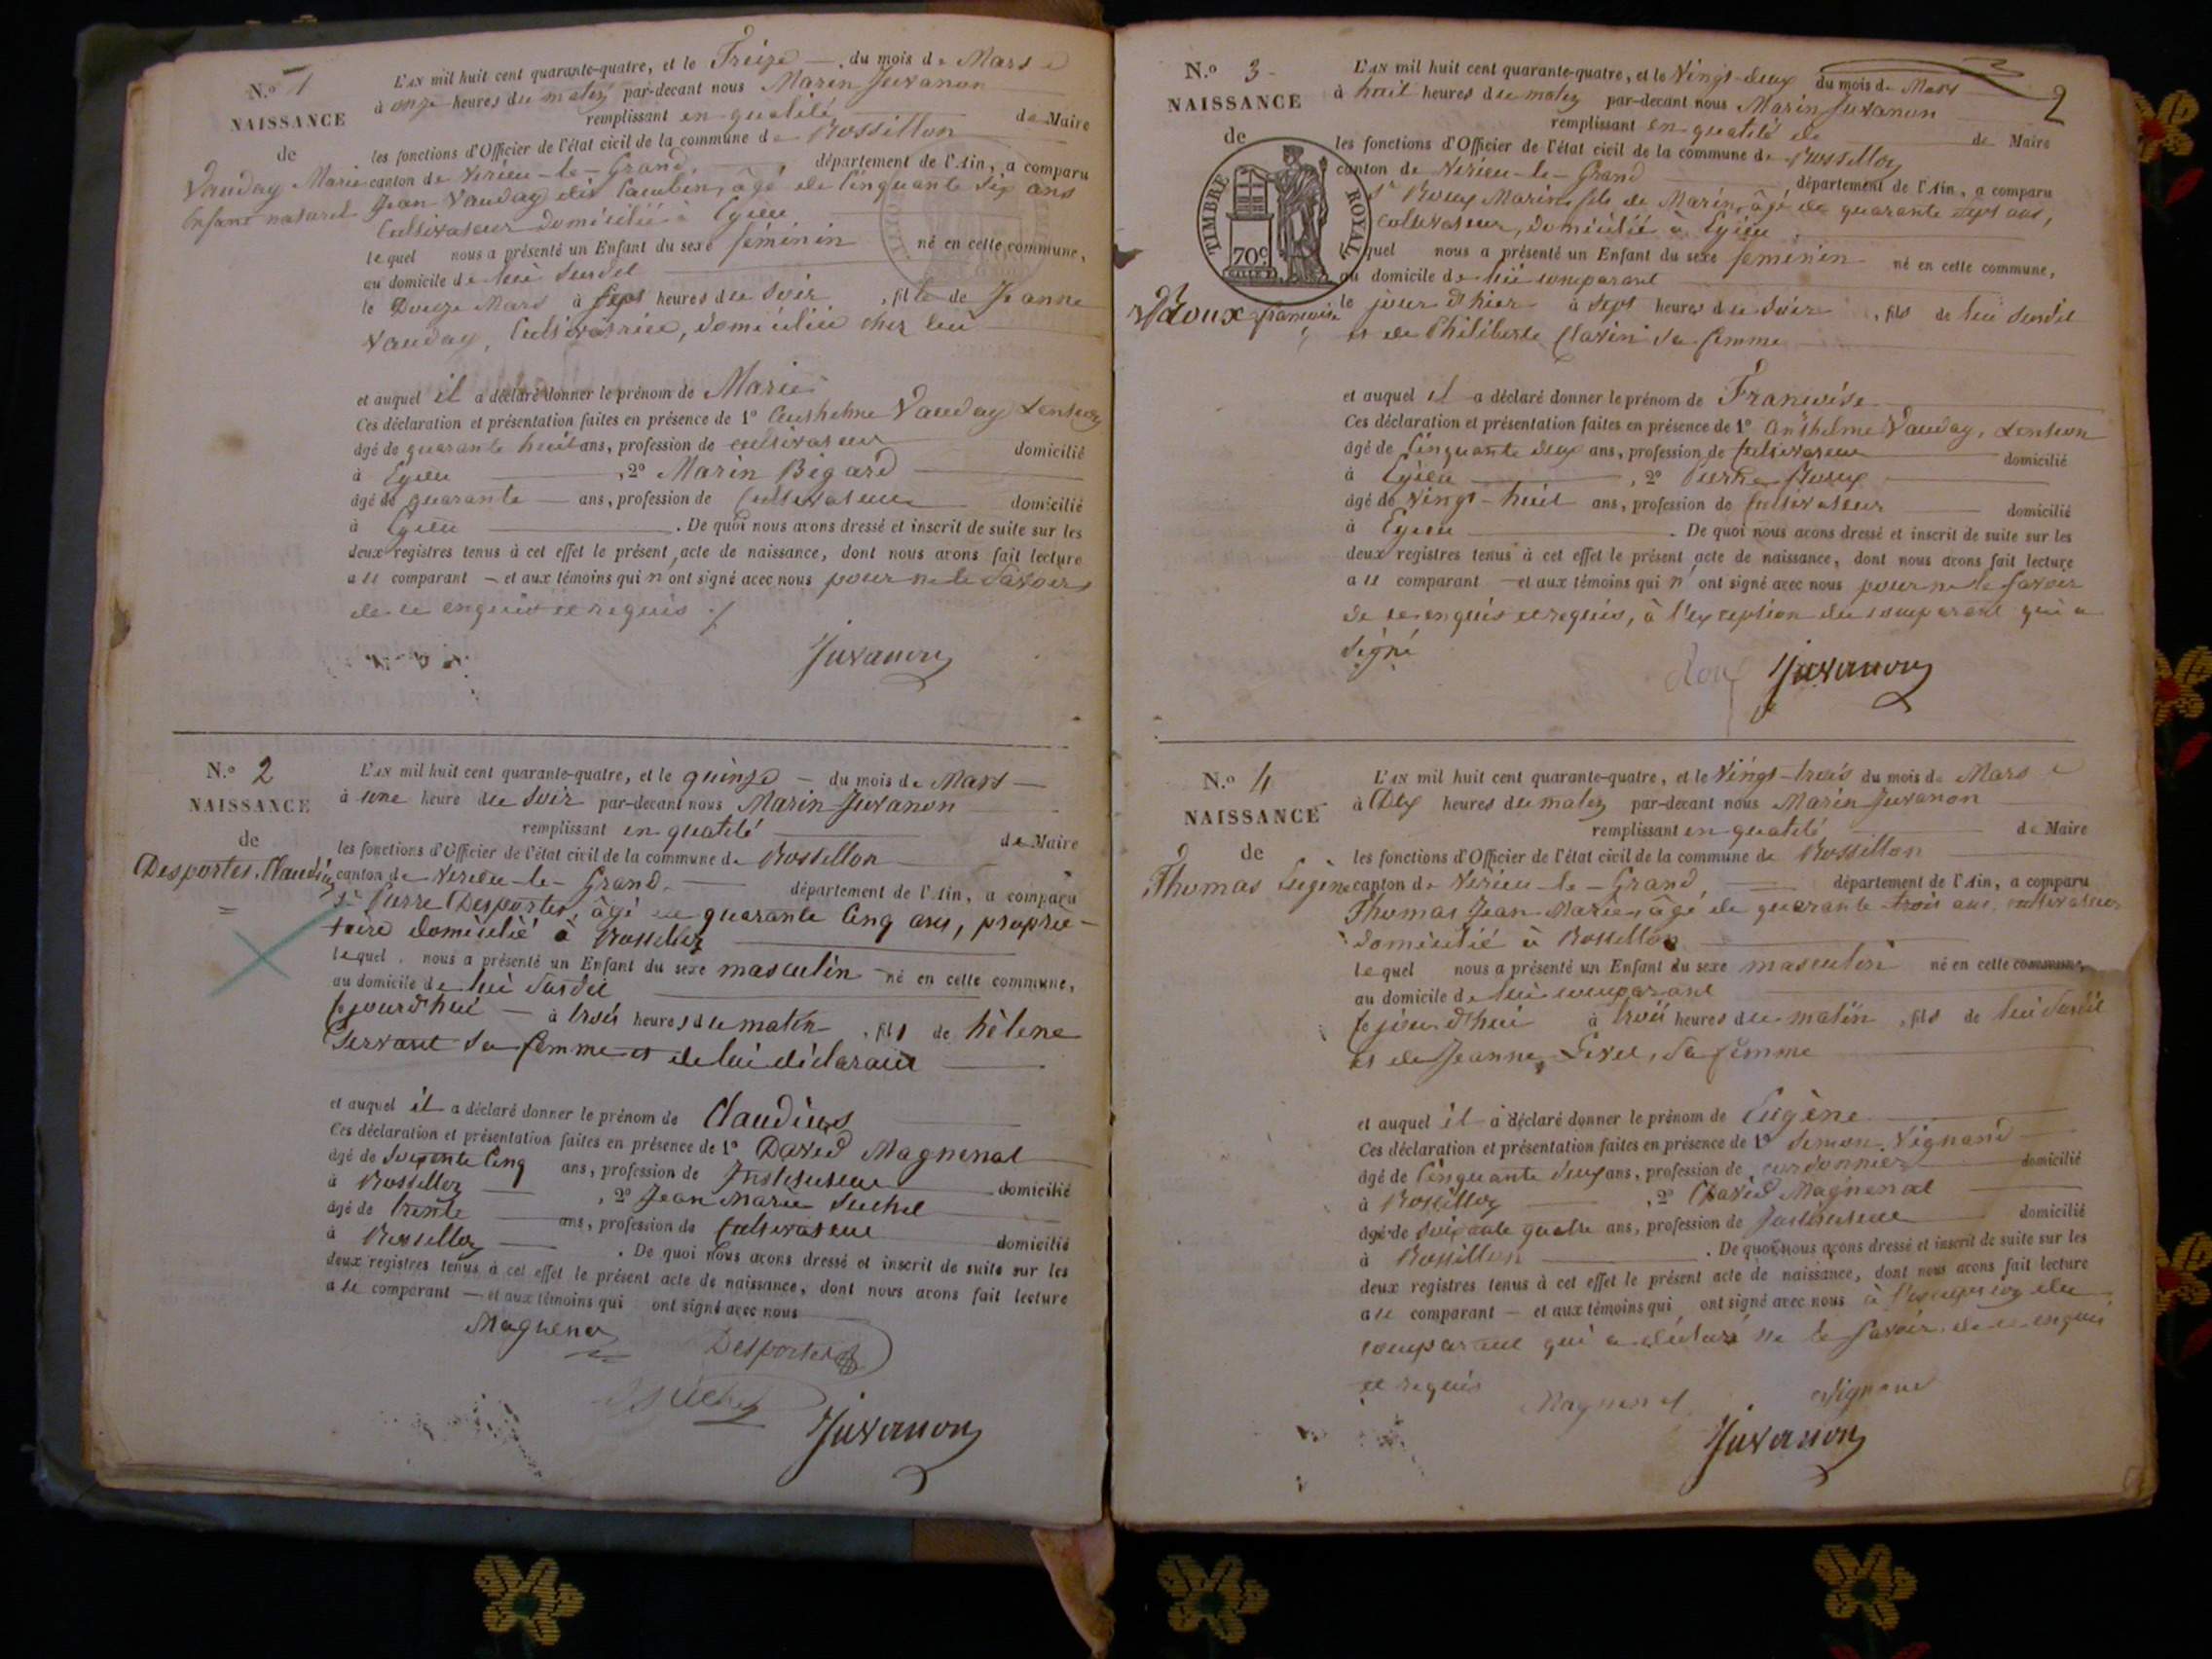 N.o 1
NAISSANCE
de
Vauday Marie
Enfant naturel
L'AN mil huit cent quarante-quatre, et le Treize du mois de Mars
à onze heures du matin par-devant nous Marin Juvanon
remplissant en qualité de Maire
les fonctions d'Officier de l'état civil de la commune de Rossillon
canton de Virieu-le-Grand, département de l'Ain, a comparu
Jean Vauday dit âgé de Cinquante Six ans
Cultivateur domicilié à Egieu
lequel nous a présenté un Enfant du sexe féminin né en cette commune,
au domicile de lui susdit
le Douze Mars à Sept heures du Soir, fille de Jeanne
Vauday, Cultivatrice, domiciliée chez lui
et auquel il a déclaré donner le prénom de Marie
Ces déclaration et présentation faites en présence de 1o Anthelme Vauday
âgé de quarante huit ans, profession de cultivateur domicilié
à Egieu, 2o Marin Bigard
âgé de quarante ans, profession de Cultivateur domicilié
à Egieu. De quoi nous avons dressé et inscrit de suite sur les
deux registres tenus à cet effet le présent acte de naissance, dont nous avons fait lecture
au comparant et aux témoins qui n'ont signé avec nous pour ne le Savoir
de ce enquis et requis ./
Juvanon
N.o 2
NAISSANCE
de
Desportes, Claudius
L'AN mil huit cent quarante-quatre, et le quinze du mois de Mars
à une heure du Soir par-devant nous Marin Juvanon
remplissant en qualité de Maire
les fonctions d'Officier de l'état civil de la commune de Rossillon
canton de Virieu-le-Grand, département de l'Ain, a comparu
Sr Pierre Desportes, âgé de quarante Cinq ans, proprié-
taire domicilié à Rossillon
lequel nous a présenté un Enfant du sexe masculin né en cette commune,
au domicile de lui Susdit
ce jourd'hui à trois heures du matin, fils de hélene
Servant Sa femme et de lui déclarant
et auquel il a déclaré donner le prénom de Claudius
Ces déclaration et présentation faites en présence de 1o David Magnenat
âgé de Soixante Cinq ans, profession de Instituteur domicilié
à Rossillon, 2o Jean Marie Suchet
âgé de trente ans, profession de Cultivateur domicilié
à Rossillon. De quoi nous avons dressé et inscrit de suite sur les
deux registres tenus à cet effet le présent acte de naissance, dont nous avons fait lecture
au comparant et aux témoins qui ont signé avec nous
Magnenat Desportes
Suchet
Juvanon
2
N.o 3
NAISSANCE
de
TIMBRE ROYAL
70c
Roux françoise
L'AN mil huit cent quarante-quatre, et le Vingt-deux du mois de Mars
à huit heures du matin par-devant nous Marin Juvanon
remplissant en qualité de de Maire
les fonctions d'Officier de l'état civil de la commune de Rossillon
canton de Virieu-le-Grand département de l'Ain, a comparu
Sr Roux Marin, fils de Marin, âgé de quarante sept ans,
cultivateur, domicilié à Egieu
lequel nous a présenté un Enfant du sexe feminin né en cette commune,
au domicile de lui comparant
le jour d'hier à sept heures du Soir, fils de lui susdit
et de Philiberte Clavin Sa femme
et auquel il a déclaré donner le prénom de Françoise
Ces déclaration et présentation faites en présence de 1o Anthelme Vauday,
âgé de Cinquante deux ans, profession de Cultivateur domicilié
à Egieu, 2o Pierre Roux
âgé de Vingt-huit ans, profession de Cultivateur domicilié
à Egieu. De quoi nous avons dressé et inscrit de suite sur les
deux registres tenus à cet effet le présent acte de naissance, dont nous avons fait lecture
au comparant et aux témoins qui n'ont signé avec nous pour ne le Savoir
de ce enquis et requis, à l'exception du comparant qui a
Signé
Roux Juvanon
N.o 4
NAISSANCE
de
Thomas Eugène
L'AN mil huit cent quarante-quatre, et le Vingt-trois du mois de Mars
à Dix heures du matin par-devant nous Marin Juvanon
remplissant en qualité de Maire
les fonctions d'Officier de l'état civil de la commune de Rossillon
canton de Virieu-le-Grand, département de l'Ain, a comparu
Thomas Jean Marie, âgé de quarante trois ans, cultivateur
domicilié à Rossillon
lequel nous a présenté un Enfant du sexe masculin né en cette commune,
au domicile de lui comparant
ce jourd'hui à trois heures du matin, fils de lui Susdit
et de Jeanne Sa femme
et auquel il a déclaré donner le prénom de Eugène
Ces déclaration et présentation faites en présence de 1o Simon Vignand
âgé de Cinquante deux ans, profession de cordonnier domicilié
à Rossillon, 2o David Magnenat
âgé de Soixante quatre ans, profession de Instituteur domicilié
à Rossillon. De quoi nous avons dressé et inscrit de suite sur les
deux registres tenus à cet effet le présent acte de naissance, dont nous avons fait lecture
au comparant et aux témoins qui ont signé avec nous à l'exception du
comparant qui a déclaré ne le Savoir de ce enquis
et requis
Magnenat Vignand
Juvanon